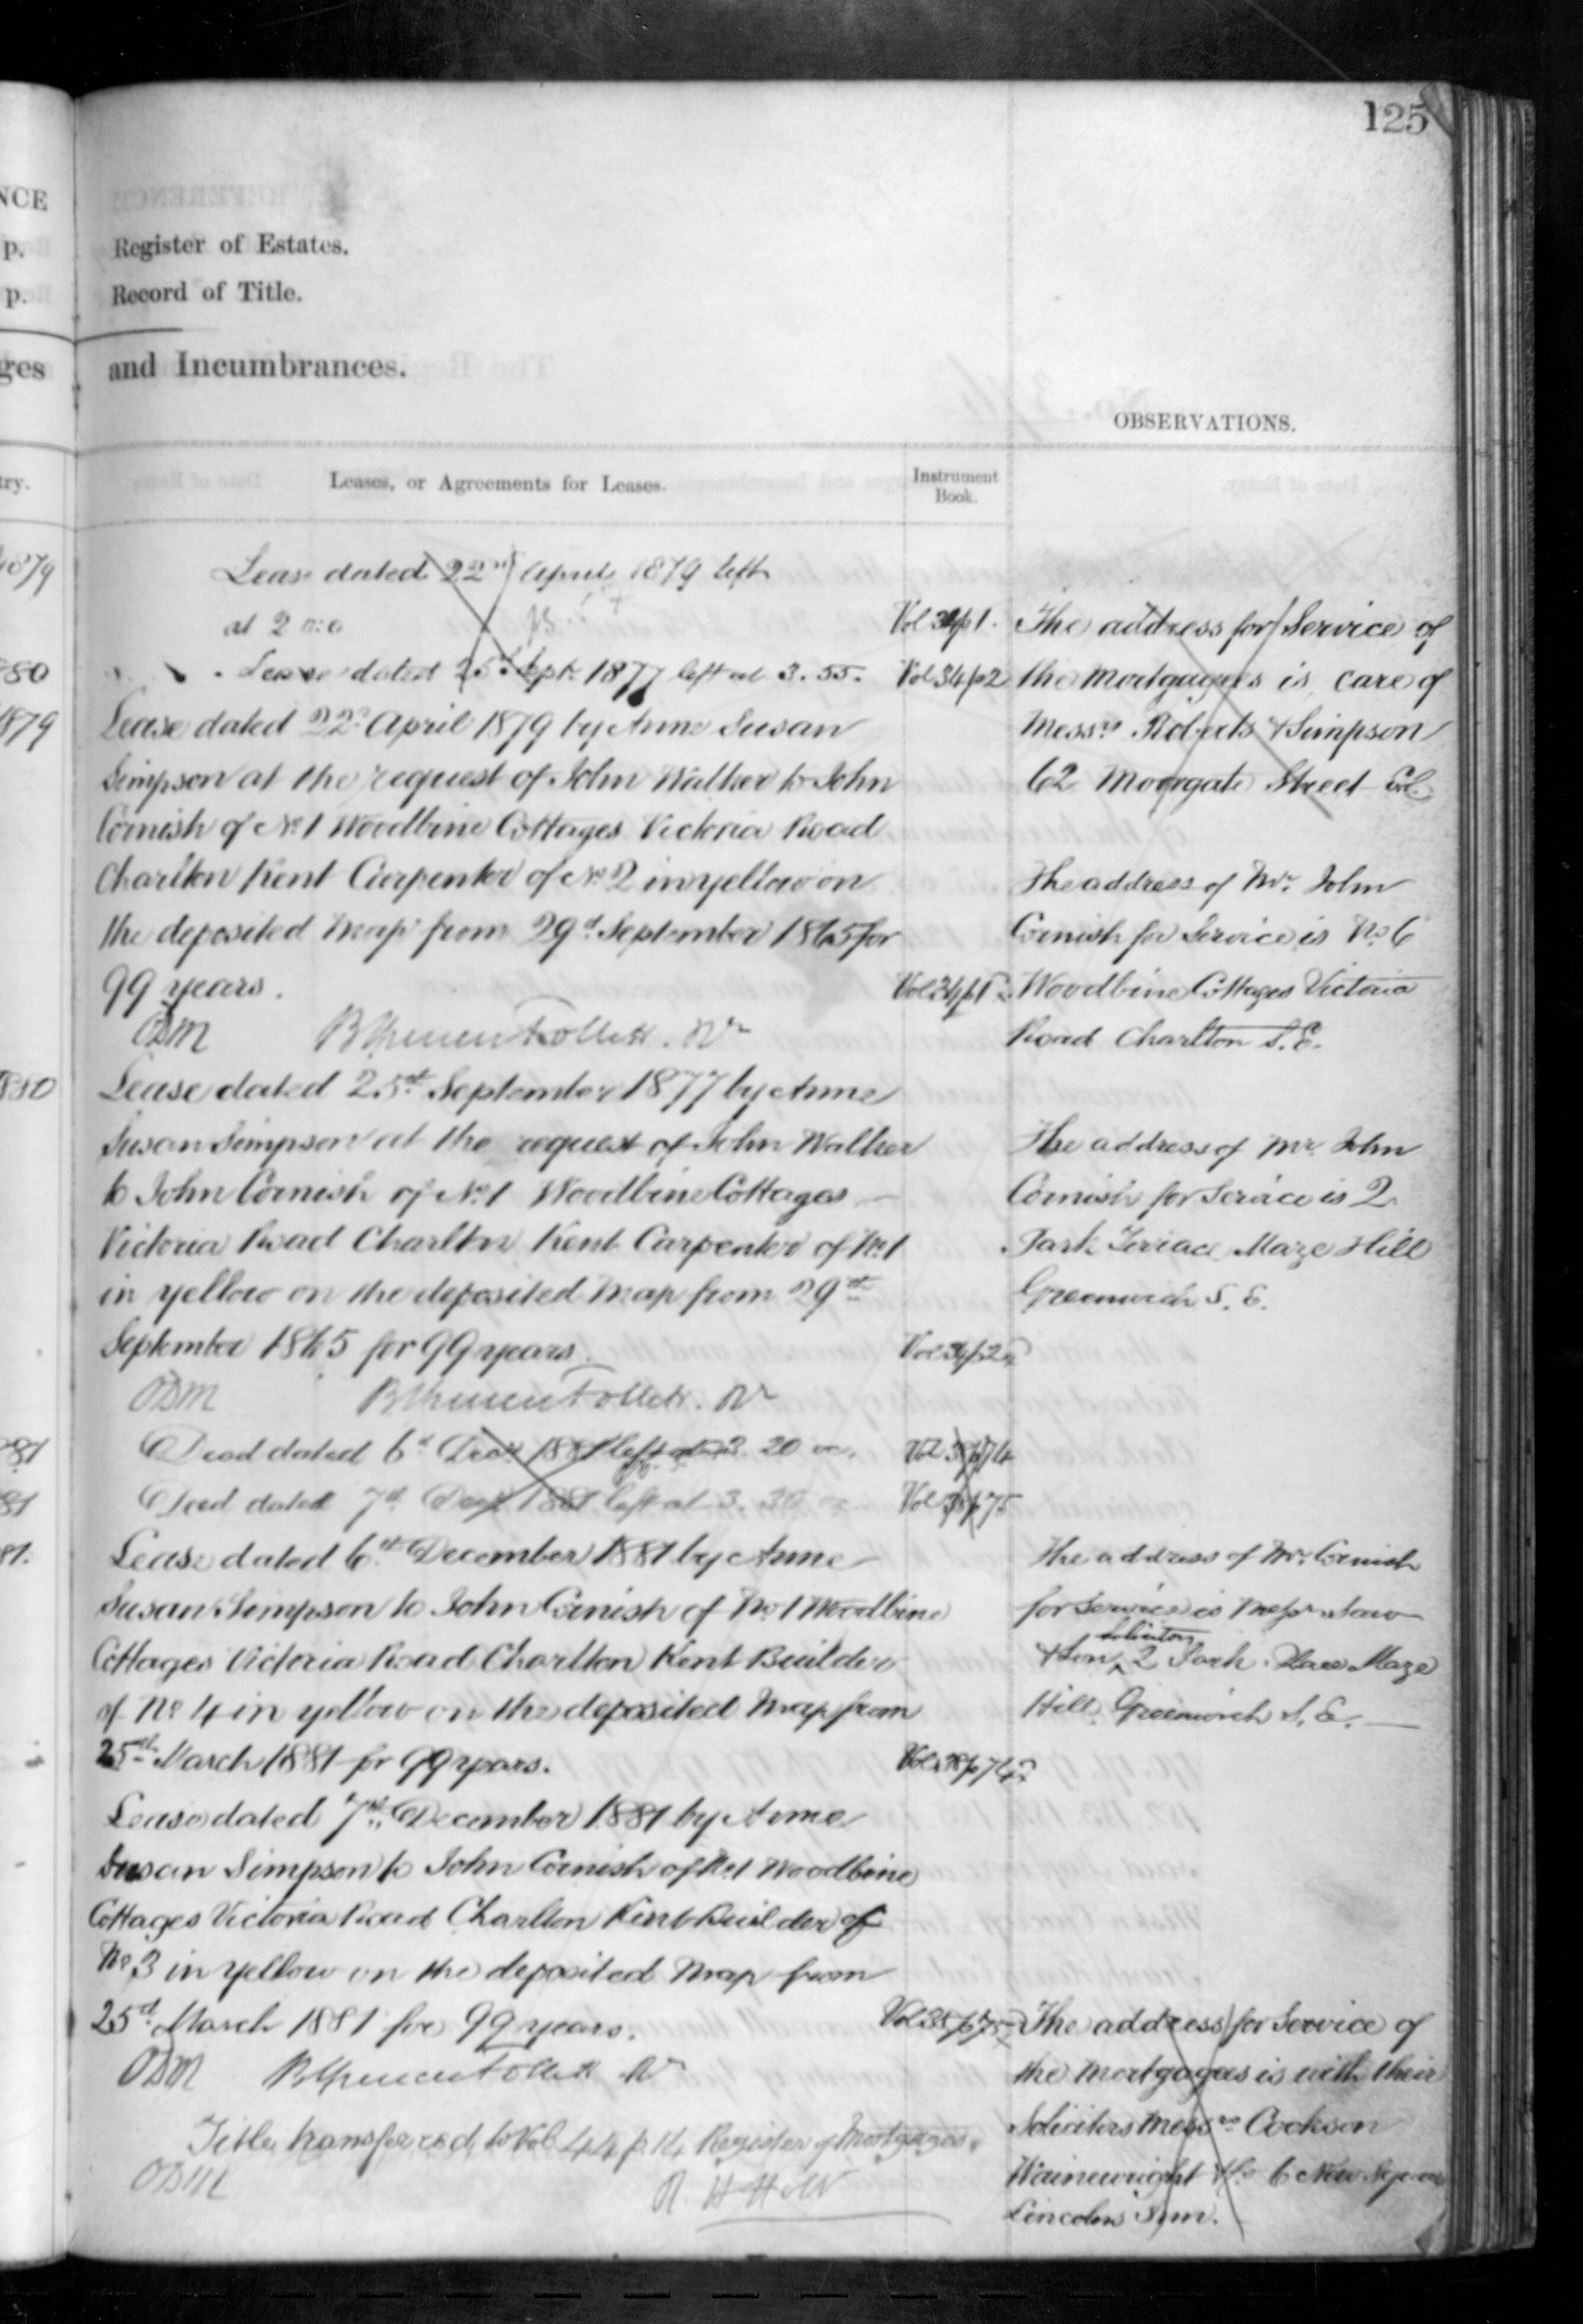 125
NCE
p.
p.
ges
try.
1879
880
1879
1880
881
81
81.
Register of Estates.
Record of Title.
and Incumbrances.
OBSERVATIONS.
Leases, or Agreements for Leases.
Instrument
Book.
Lease dated 22nd April 1879 left
at 2
Lease dated 25th Sept. 1877 left at 3.55.
Vol 34 p 1.
Vol 34 p 2
Lease dated 22d April 1879 by Anne Susan
Simpson at the request of John Walker to John
Cornish of No 1 Woodbine Cottages Victoria Road
Charlton Kent Carpenter of No 2 in yellow on
the deposited Map from 29th September 1865 for
99 years.
Vol 34 p 1
ODM
Lease dated 25th September 1877 by Anne
Susan Simpson at the request of John Walker
to John Cornish of No 1 Woodbine Cottages
Victoria Road Charlton Kent Carpenter of No 1
in yellow on the deposited Map from 29th
September 1865 for 99 years.
Vol 34 p 2
ODM
Deed dated 6th Decr 1881 left at 3.20
Vol 38 p 74
Deed dated 7th Decr 1881 left at 3.30
Vol 38 p 75
Lease dated 6th December 1881 by Anne
Susan Simpson to John Cornish of No 1 Woodbine
Cottages Victoria Road Charlton Kent Builder
of No 4 in yellow on the deposited Map from
25th March 1881 for 99 years.
Vol 38 p 74
Lease dated 7th December 1881 by Anne
Susan Simpson to John Cornish of No 1 Woodbine
Cottages Victoria Road Charlton Kent Builder of
No 3 in yellow on the deposited Map from
25th March 1881 for 99 years.
Vol 38 p 75
ODM
Title transferred to Vol 44 p. 14 Register of Mortgages.
ODM R. H Holt
The address for Service of
the Mortgagees is care of
Messrs Roberts & Simpson
62 Moorgate Street E.C.
The address of Mr. John
Cornish for Service is No 6
Woodbine Cottages Victoria
Road Charlton S.E.
The address of Mr. John
Cornish for Service is 2
Park Terrace Maze Hill
Greenwich S.E.
The address of Mr. Cornish
for Service is Messrs
& Son Solicitors 2 Park Place Maze
Hill Greenwich S.E.
The address for Service of
the Mortgagees is with their
Solicitors Messrs Cookson
Wainewright & Co 6 New Square
Lincolns Inn.